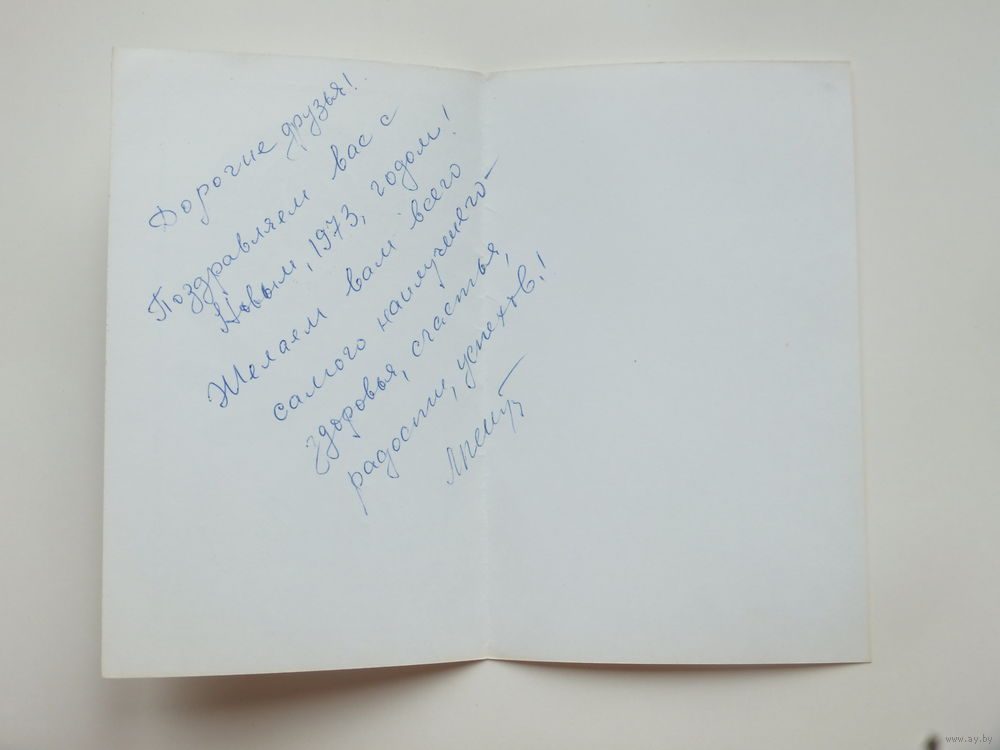 Дорогие друзья!
Поздравляем вас с
Новым, 1973, годом!
Желаем вам всего
самого наилучшего –
здоровья, счастья,
радости, успехов.!
www.ay.by